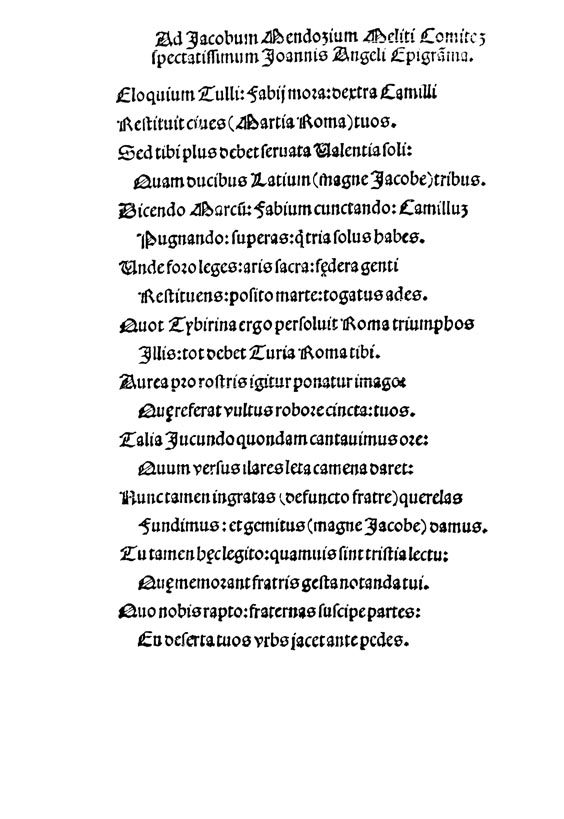 Ad Jacobum Mendozium Meliti Comitēz
spectatissimum Joannis Angeli Epigrāma.
Eloquium Tulli: fabij mora: dextra Camilli
Restituit ciues (Martia Roma) tuos.
Sed tibi plus debet seruata Valentia soli:
Quam ducibus Latium (magne Jacobe) tribus.
Dicendo Marcū: fabium cunctando: Camilluz
Pugnando: superas: q̇ tria solus habes.
Unde foro leges: aris sacra: fędera genti
Restituens: posito marte: togatus ades.
Quot Tybirina ergo persoluit Roma triumphos
Illis: tot debet Turia Roma tibi.
Aurea pro rostris igitur ponatur imago
Quę referat vultus robore cincta: tuos.
Talia Jucundo quondam cantauimus ore:
Quum versus ilares leta camena daret:
Nunc tamen ingratas (defuncto fratre) querelas
fundimus: et gemitus (magne Jacobe) damus.
Tu tamen hęc legito: quamuis sint tristia lectu:
Quę memorant fratris gesta notanda tui.
Quo nobis rapto: fraternas suscipe partes:
En deserta tuos vrbs jacet ante pedes.